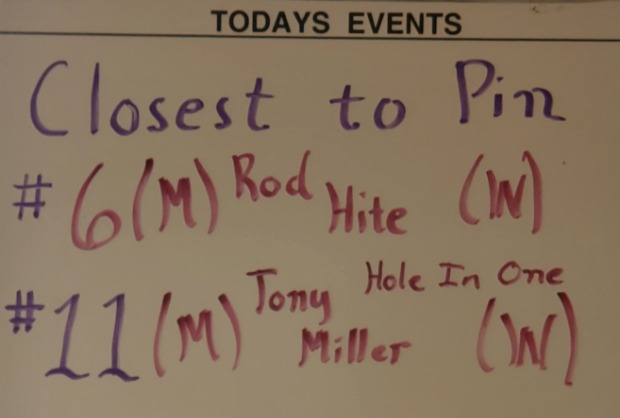 TODAYS EVENTS
Closest to Pin
#6 (M) Rod Hite (W)
Hole In One
#11 (M) Tony Miller (W)